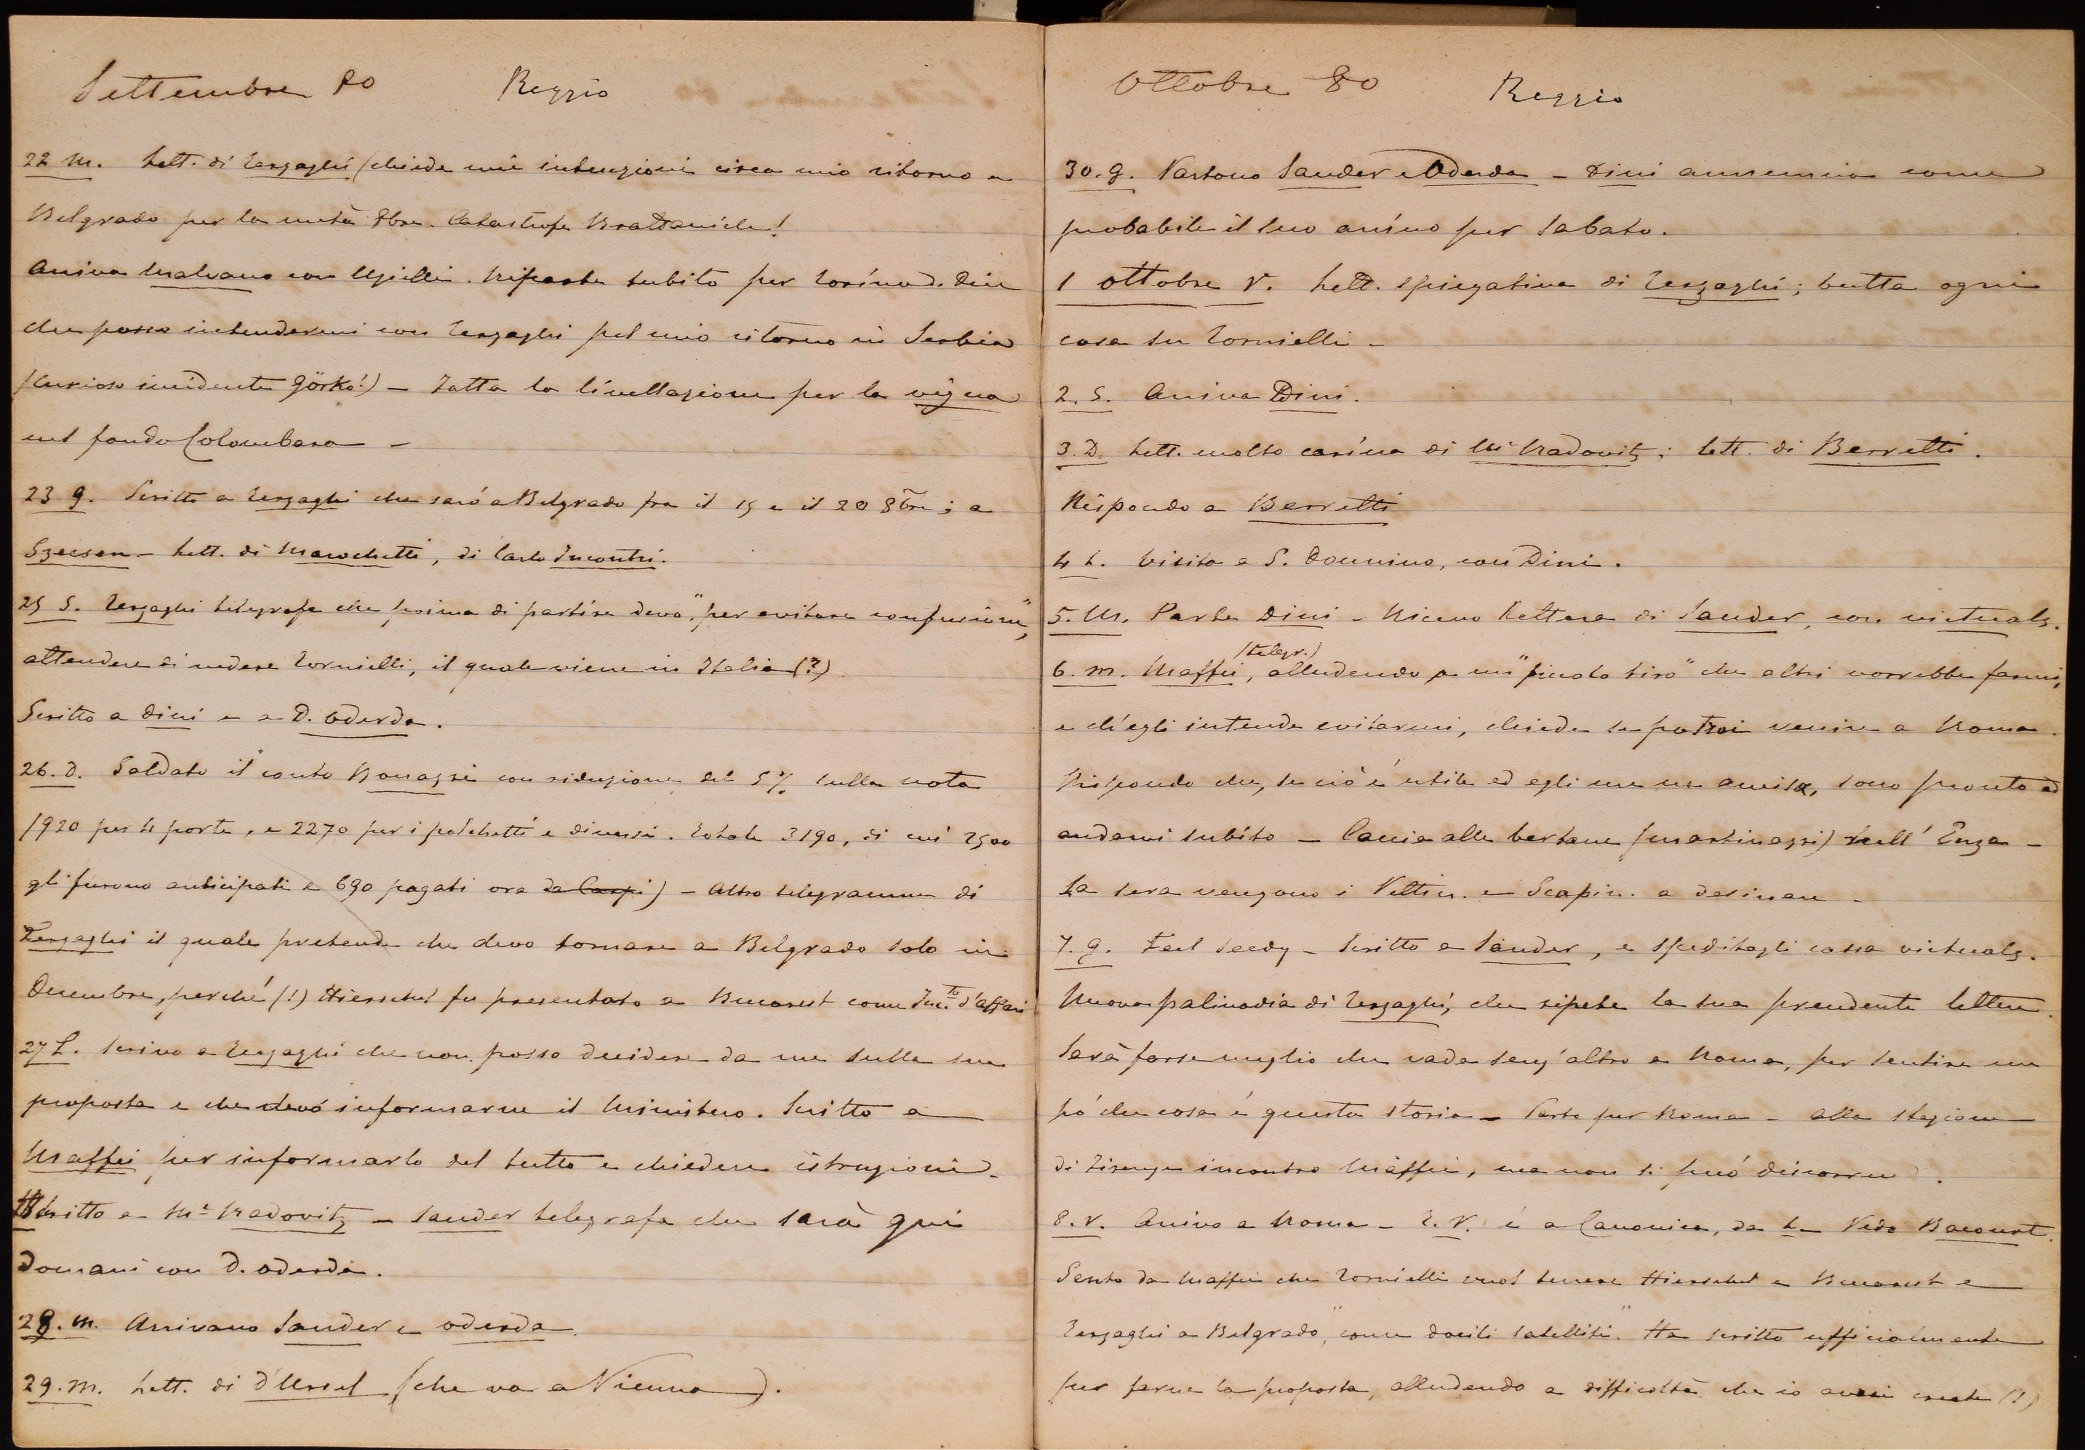 Settembre 80 Reggio
22 M. Lett. di Terzaghi (chiede mie intenzioni circa mio ritorno a
Belgrado per la metà 8bre. Catastrofe
Arriva Malvano con Ugielli. Riparte subito per Torino. Dice
che posso intendermi con Terzaghi pel mio ritorno in Serbia
(curioso incidente Görkó!) – Fatta la livellazione per la vigna
nel fondo Colombara –
23 G. Scritto a Terzaghi che sarò a Belgrado fra il 15 e il 20 8bre; a
Szecsen – Lett. di Marochetti, di Carlo Incontri.
25 S. Terzaghi telegrafa che prima di partire devo, "per evitare confusioni",
attendere di vedere Tornielli, il quale viene in Italia (?)
Scritto a Dini e a D. Oderda.
26. D. Saldato il conto Bonazzi con riduzione del 5% sulla nota
(920 per le porte, e 2270 per i palchetti e diversi. Totale 3190, di cui 2500
gli furono anticipati e 690 pagati ora da Carpi) – Altro telegramma di
Terzaghi il quale pretende che devo tornare a Belgrado solo in
Decembre, perché (!) Hierschel fu presentato a Bucarest come Inc.to d'affari
27 L. Scrivo a Terzaghi che non posso decidere da me sulla sua
proposta e che devo informarne il Ministero. Scritto a
Maffei per informarlo del tutto e chiedere istruzioni –
Scritto a Mr Radovitz – Sander telegrafa che sarà qui
domani con D. Oderda.
28. M. Arrivano Sander e Oderda.
29. M. Lett. di d'Ursel (che va a Vienna).
Ottobre 80 Reggio
30. G. Partono Sander e Oderda – Dini annuncia come
probabile il suo arrivo per Sabato.
1 Ottobre V. Lett. spiegativa di Terzaghi; butta ogni
cosa su Tornielli –
2. S. Arriva Dini.
3. D. Lett. molto carina di Mr Radovitz; lett. di Berretti.
Rispondo a Berretti
4 L. Visita a S. Donnino, con Dini.
5. M. Parte Dini – Ricevo lettera di Sander, con victuals.
6. M. Maffei, (telegr.) alludendo a un "piccolo tiro" che altri vorrebbe farmi,
e ch'egli intende evitarmi, chiede se potrei venire a Roma.
Rispondo che, se ciò è utile ed egli me ne avvisa, sono pronto ad
andarvi subito – Caccia alle bertane (martinazzi) sull' Enza –
La sera vengono i Veltin. e Scapin. a desinare –
7. G. Feel seedy – Scritto a Sander, e speditagli cassa victuals.
Nuova palinodia di Terzaghi, che ripete la sua precedente lettera.
Sarà forse meglio che vada senz'altro a Roma, per sentire un
pó che cosa é questa storia – Parto per Roma – Alla stazione
di Firenze incontro Maffei, ma non si puó discorrere.
8. V. Arrivo a Roma – E. V. è a Canonica, da L – Vedo Bacourt.
Sento da Maffei che Tornielli vuol tenere Hierschel a Bucarest e
Terzaghi a Belgrado, "come docili satelliti". Ha scritto ufficialmente
per farne la proposta, alludendo a difficoltà che io avrei create (!)